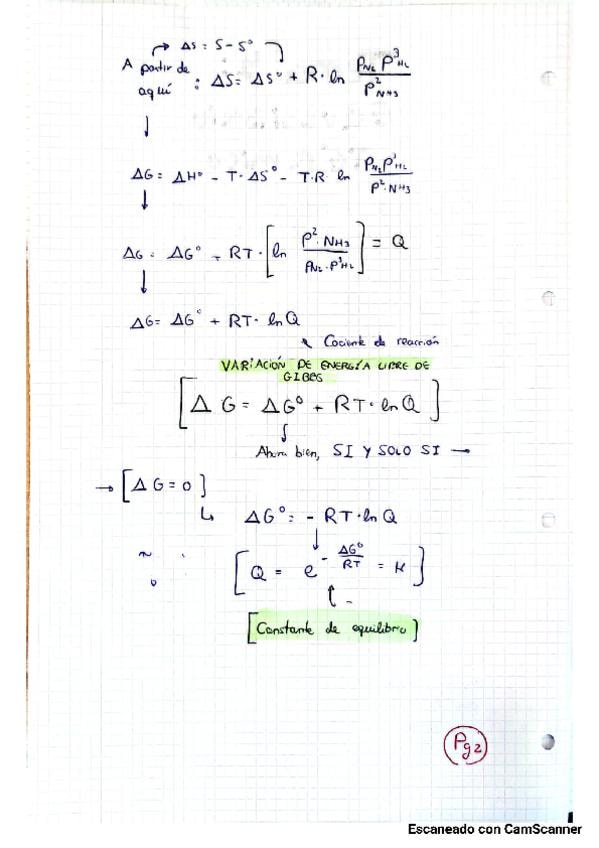 ΔS = S - S°
A partir de aquí : ΔS = ΔS° + R · ln (P_N₂ P³_H₂ / P²_NH₃)
ΔG = ΔH° - T · ΔS° - T·R ln (P_N₂ P³_H₂ / P²·NH₃)
ΔG = ΔG° + RT · [ln (P²·NH₃ / P_N₂ · P³_H₂)] = Q
ΔG = ΔG° + RT · ln Q
Cociente de reacción
VARIACIÓN DE ENERGÍA LIBRE DE
GIBBS
[Δ G = ΔG° + RT · ln Q]
Ahora bien, SI Y SOLO SI →
→ [Δ G = 0]
ΔG° = - RT · ln Q
[Q = e^(-ΔG°/RT) = K]
[Constante de equilibro]
Pg 2
Escaneado con CamScanner